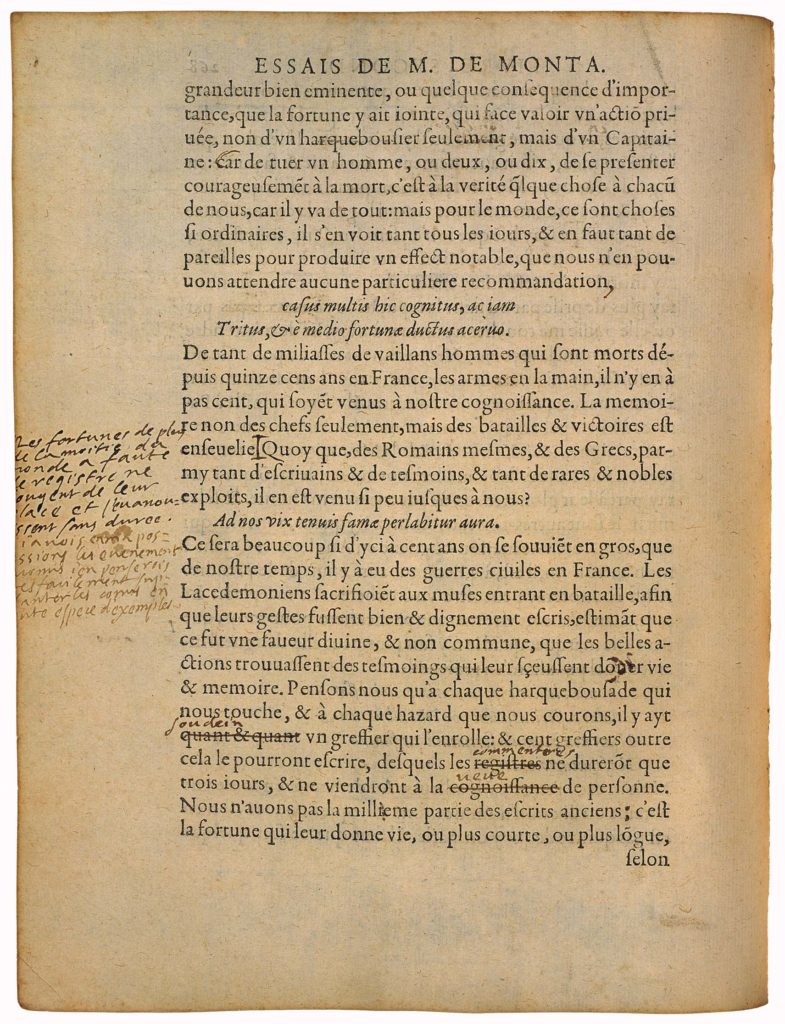 ESSAIS DE M. DE MONTA.
grandeur bien eminente, ou quelque conſequence d'impor-
tance, que la fortune y ait iointe, qui face valoir vn'actiõ pri-
uée, non d'vn harquebouſier ſeulement, mais d'vn Capitai-
ne: Car de tuer vn homme, ou deux, ou dix, de ſe preſenter
courageuſemẽt à la mort, c'eſt à la verité q̃lque choſe à chacũ
de nous, car il y va de tout: mais pour le monde, ce ſont choſes
ſi ordinaires, il s'en voit tant tous les iours, & en faut tant de
pareilles pour produire vn effect notable, que nous n'en pou-
uons attendre aucune particuliere recommandation,
caſus multis hic cognitus, ac iam
Tritus, & è medio fortunæ ductus aceruo.
De tant de miliaſſes de vaillans hommes qui ſont morts dé-
puis quinze cens ans en France, les armes en la main, il n'y en à
pas cent, qui ſoyẽt venus à noſtre cognoiſſance. La memoi-
re non des chefs ſeulement, mais des batailles & victoires eſt
enſeuelie. Quoy que, des Romains meſmes, & des Grecs, par-
my tant d'eſcriuains & de teſmoins, & tant de rares & nobles
exploits, il en eſt venu ſi peu iuſques à nous?
Ad nos vix tenuis famæ perlabitur aura.
Ce ſera beaucoup ſi d'yci à cent ans on ſe ſouuiẽt en gros, que
de noſtre temps, il y à eu des guerres ciuiles en France. Les
Lacedemoniens ſacrifioiẽt aux muſes entrant en bataille, afin
que leurs geſtes fuſſent bien & dignement eſcris, eſtimãt que
ce fut vne faueur diuine, & non commune, que les belles a-
ctions trouuaſſent des teſmoings qui leur ſçeuſſent dõner vie
& memoire. Penſons nous qu'a chaque harquebouſade qui
nous touche, & à chaque hazard que nous courons, il y ayt
soudein
quant & quant vn greffier qui l'enrolle: & cent greffiers outre
commenteres
cela le pourront eſcrire, deſquels les regiſtres ne durerõt que
veue
trois iours, & ne viendront à la cognoiſſance de perſonne.
Nous n'auons pas la millieme partie des eſcrits anciens; c'eſt
la fortune qui leur donne vie, ou plus courte, ou plus lõgue,
ſelon
Les fortunes de plus
de la moitie du
monde a faute
de registre ne
ougent de leur
place et s'euanou-
ssent sans duree.
i auois en ma pos-
ssion les euenemens
ionnus i'en penserois
resfacilement sup-
lanter les conus en
ute espece d'exemples